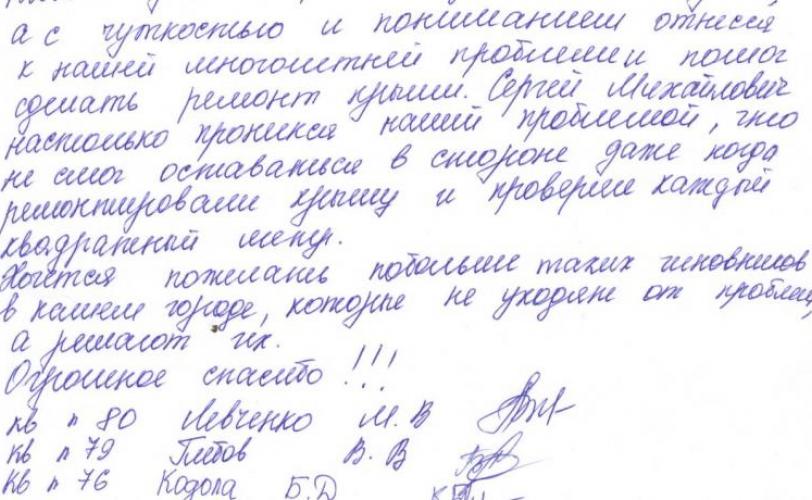 а с чуткостью и пониманием отнесся
к нашей многолетней проблеме и помог
сделать ремонт крыши. Сергей Михайлович
настолько проникся нашей проблемой, что
не смог оставаться в стороне даже когда
ремонтировали крышу и проверил каждый
квадратный метр.
Хочется пожелать побольше таких чиновников
в нашем городе, которые не уходят от проблем,
а решают их.
Огромное спасибо !!!
кв № 80 Левченко М. В
кв № 79 Глебов В. В
кв № 76 Кодола Б. Д